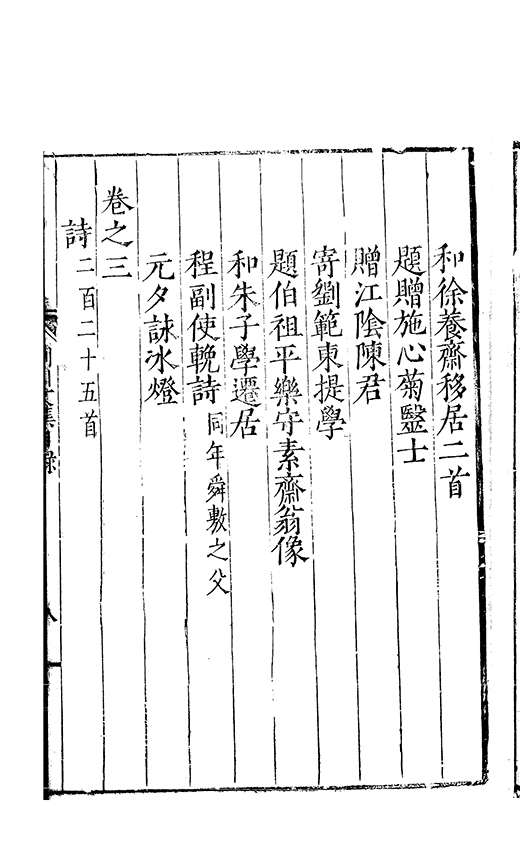 和徐養齋移居二首
題贈施心菊毉士
贈江陰陳君
寄劉範東提學
題伯祖平樂守素齋翁像
和朱子學遷居
程副使輓詩同年舜敷之父
元夕詠冰燈
卷之三
詩二百二十五首